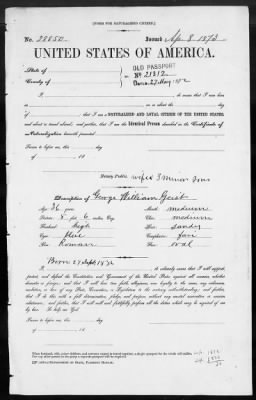 [FORM FOR NATURALIZED CITIZEN.]
No. 28850 Issued Apr 8 1873
UNITED STATES OF AMERICA.
State of
County of
OLD PASSPORT
No 21312
Dated 27 May 1872
I, do swear that I was born
at on or about the day
of ; that I am a NATURALIZED AND LOYAL CITIZEN OF THE UNITED STATES,
and about to travel abroad; and further, that I am the Identical Person described in the Certificate of
Naturalization herewith presented.
Sworn to before me, this day
of 18
Notary Public.
wife & 3 minor sons
Description of George William Geist
Age: 36 years
Mouth: medium
Stature: 5 feet 6 inches Eng.
Chin: medium
Forehead: high
Hair: sandy
Eyes: blue
Complexion: fair
Nose: Roman
Face: oval
Born 27 Sept 1836
I, do solemnly swear that I will support,
protect, and defend the Constitution and Government of the United States against all enemies, whether
domestic or foreign; and that I will bear true faith, allegiance, and loyalty to the same, any ordinance,
resolution, or law of any State, Convention, or Legislature to the contrary notwithstanding; and further,
that I do this with a full determination, pledge, and purpose, without any mental reservation or evasion
whatsoever; and further, that I will well and faithfully perform all the duties which may be required of me
by law. So help me God.
Sworn to before me, this day
of 18